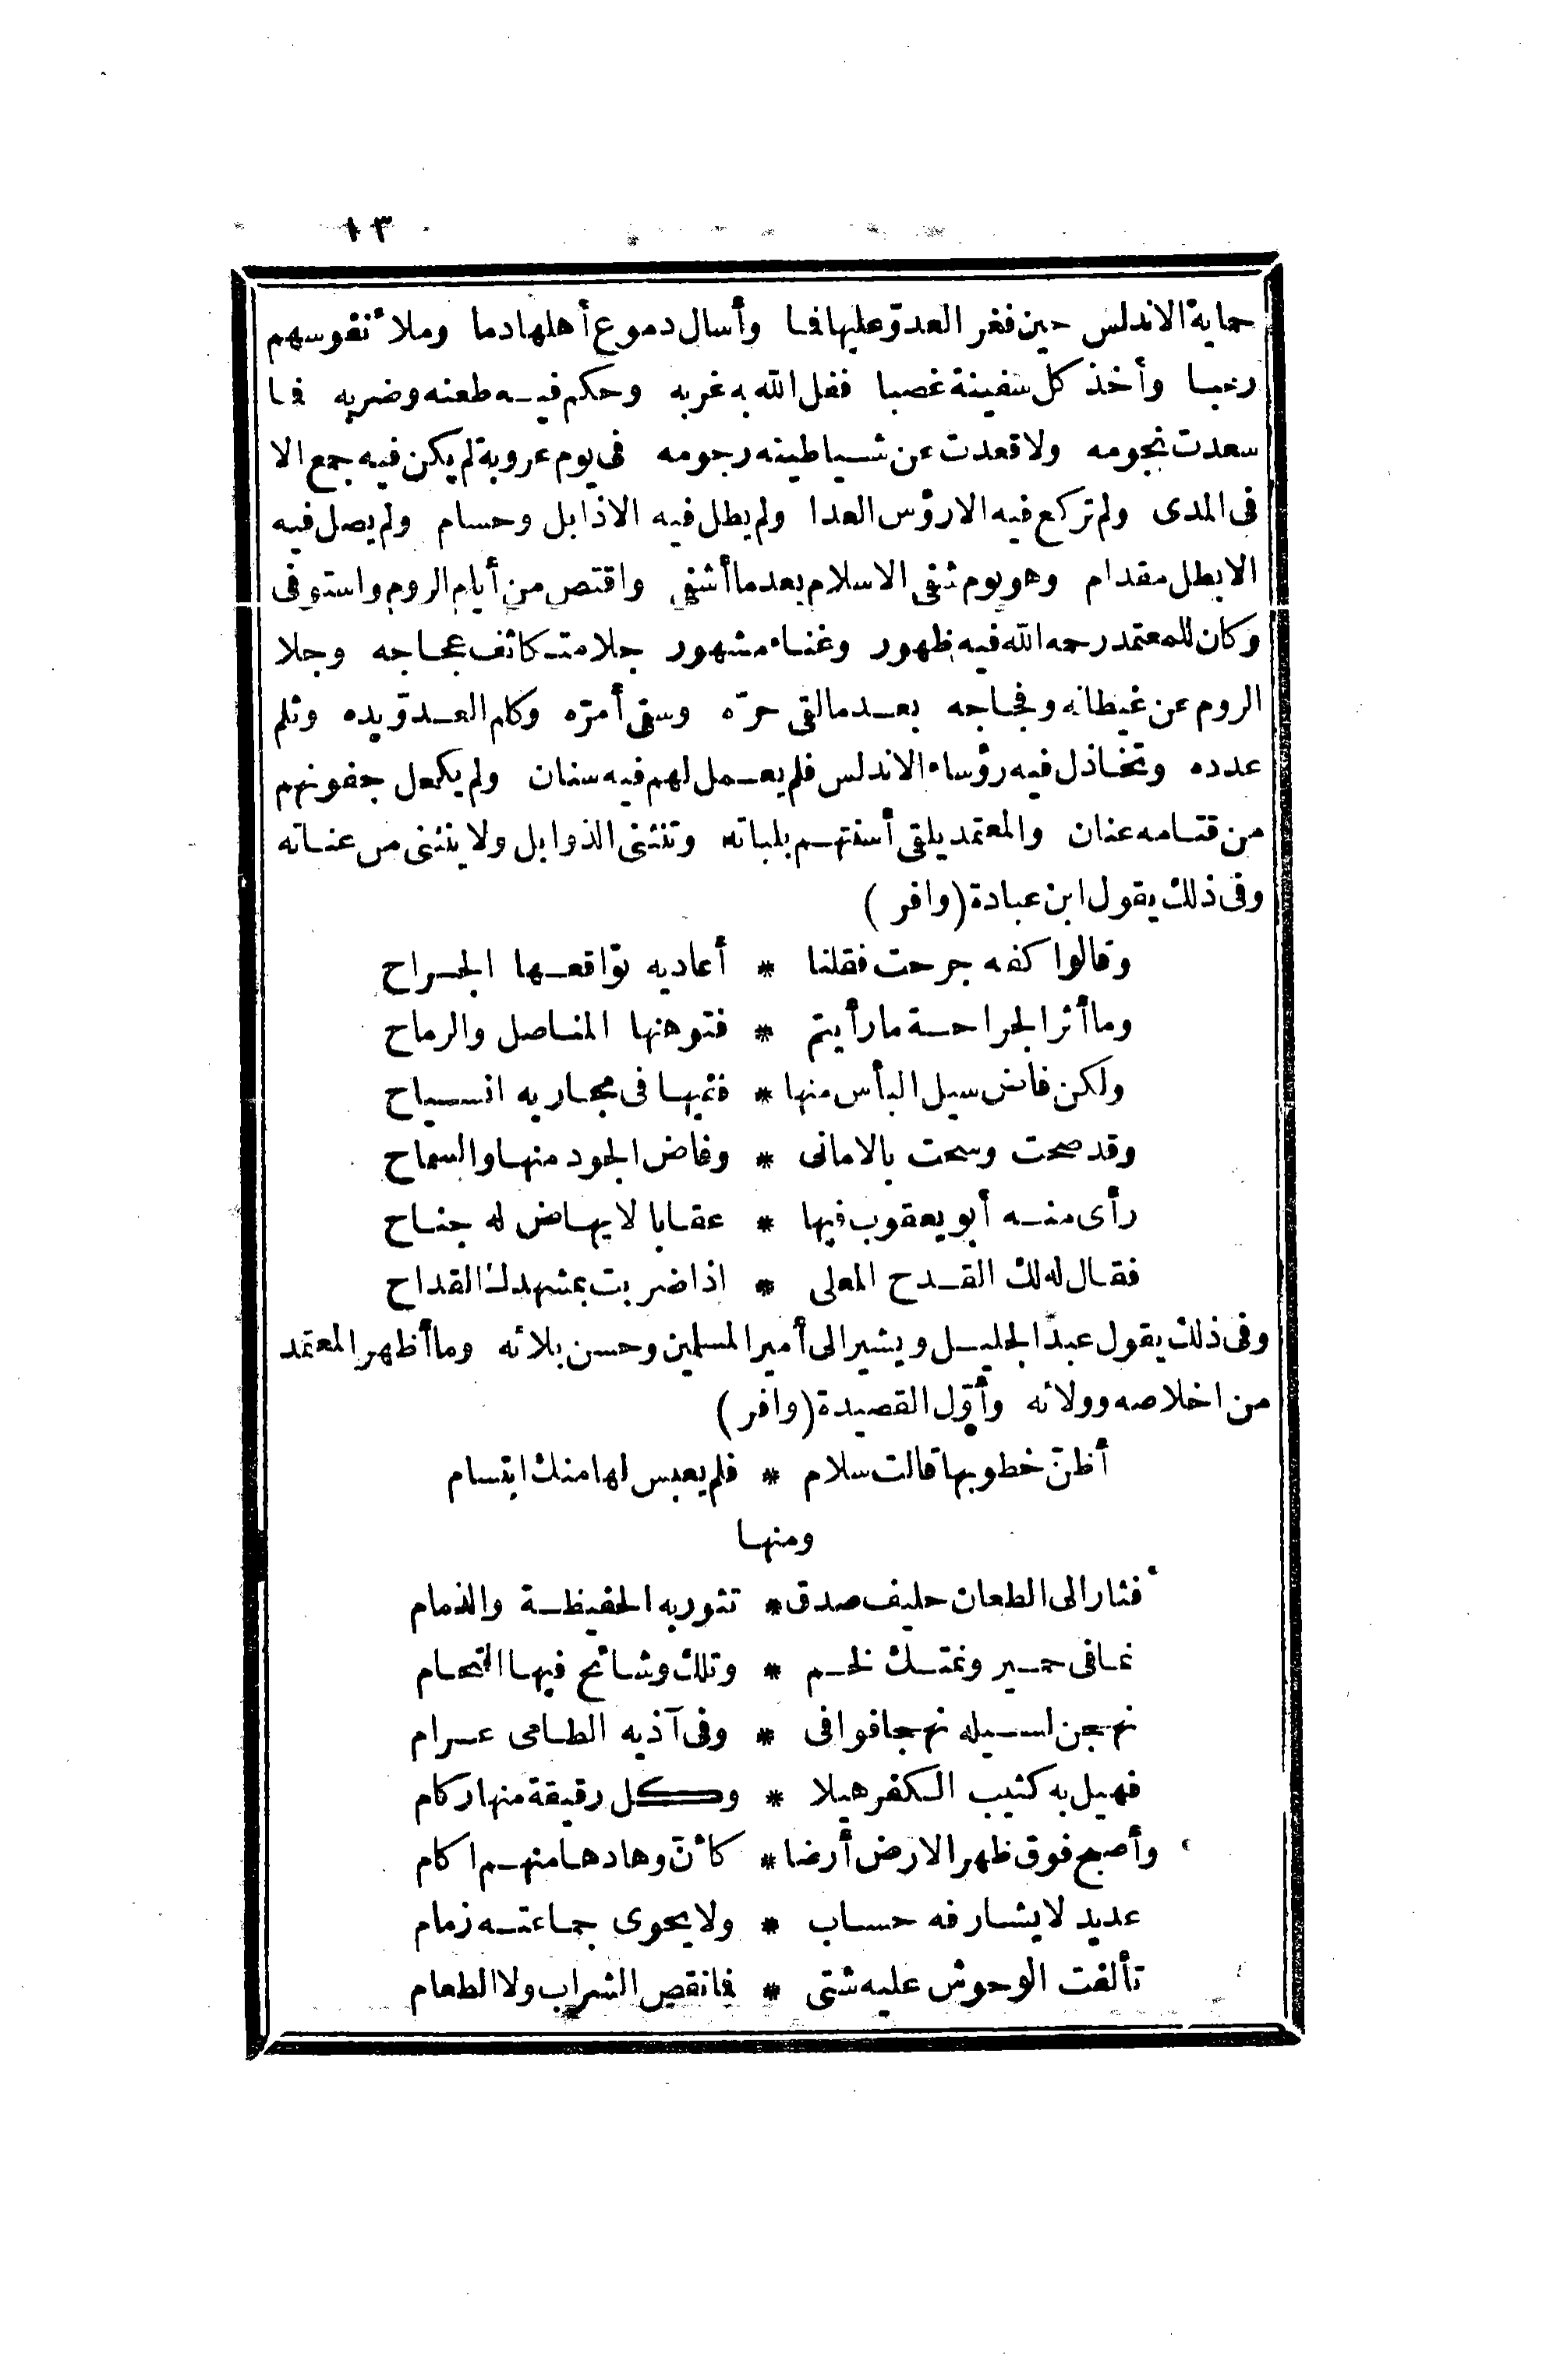 ١٣
حماية الاندلس حين فغر العدوّ عليها فما وأسال دموع أهلها دما وملأ نفوسهم
رعبا وأخذ كل سفينة غصبا ففل الله به غربه وحكم فيه طعنه وضربه فما
سعدت نجومه ولا قعدت عن شياطينه رجومه فى يوم عروبة لم يكن فيه جمع الا
فى المدى ولم تركع فيه الا رؤس العدا ولم يطل فيه الا ذابل وحسام ولم يصل فيه
الا بطل مقدام وهو يوم ثنى الاسلام بعدما أشفى واقتص من أيام الروم واستوفى
وكان للمعتمد رحمه الله فيه ظهور وغناء مشهور جلا متكاثف عجاجه وجلا
الروم عن غيطانه وفجاجه بعدما لقى حرّه وسقى أمرّه وكلم العدوّ يده وثلم
عدده وتخاذل فيه رؤساء الاندلس فلم يعمل لهم فيه سنان ولم يكحل جفونهم
من قتامه عنان والمعتمد يلقى أسنتهم بلباته وتنثنى الذوابل ولا ينثنى من عناته
وفى ذلك يقول ابن عبادة (وافر)
وقالوا كفه جرحت فقلنا * أعاديه تواقعها الجراح
وما أثر الجراحة ما رأيتم * فتوهنها المناصل والرماح
ولكن فاض سيل البأس منها * ففيها فى مجاريه انسياح
وقد صحت وسحت بالامانى * وفاض الجود منها والسماح
رأى منه أبو يعقوب فيها * عقابا لا يهاض له جناح
فقال له لك القدح المعلى * اذا ضربت بمشهدك القداح
وفى ذلك يقول عبد الجليل ويشير الى أمير المسلمين وحسن بلائه وما أظهر المعتمد
من اخلاصه وولائه وأوّل القصيدة (وافر)
أظنّ خطوبها قالت سلام * فلم يعبس لها منك ابتسام
ومنها
فثار الى الطعان حليف صدق * تثور به الحفيظة والذمام
نما فى حمير ونمتك لخم * وتلك وشائج فيها التحام
نهجن لسيله نهجا فوافى * وفى آذيه الطامى عرام
فهيل به كثيب الكفر هيلا * وكل رقيقة منها ركام
وأصبح فوق ظهر الارض أرضا * كأنّ وهادها منهم اكام
عديد لا يشارفه حساب * ولا يحوى جماعته زمام
تألفت الوحوش عليه شتى * فما نقص الشراب ولا الطعام